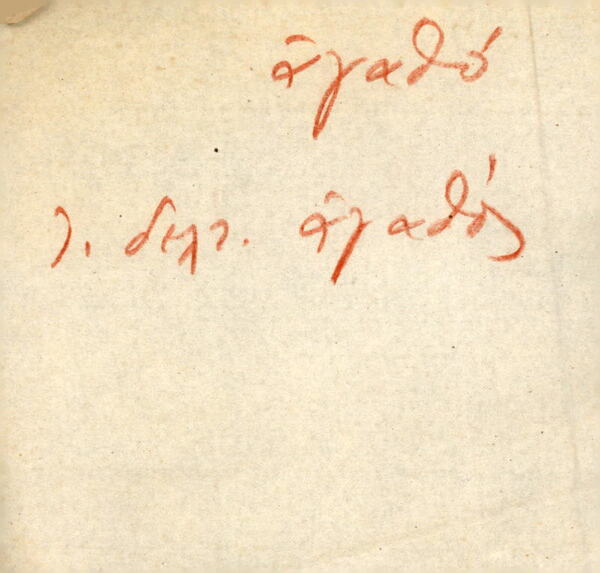 ἀγαθό
δελτ. ἀγαθός